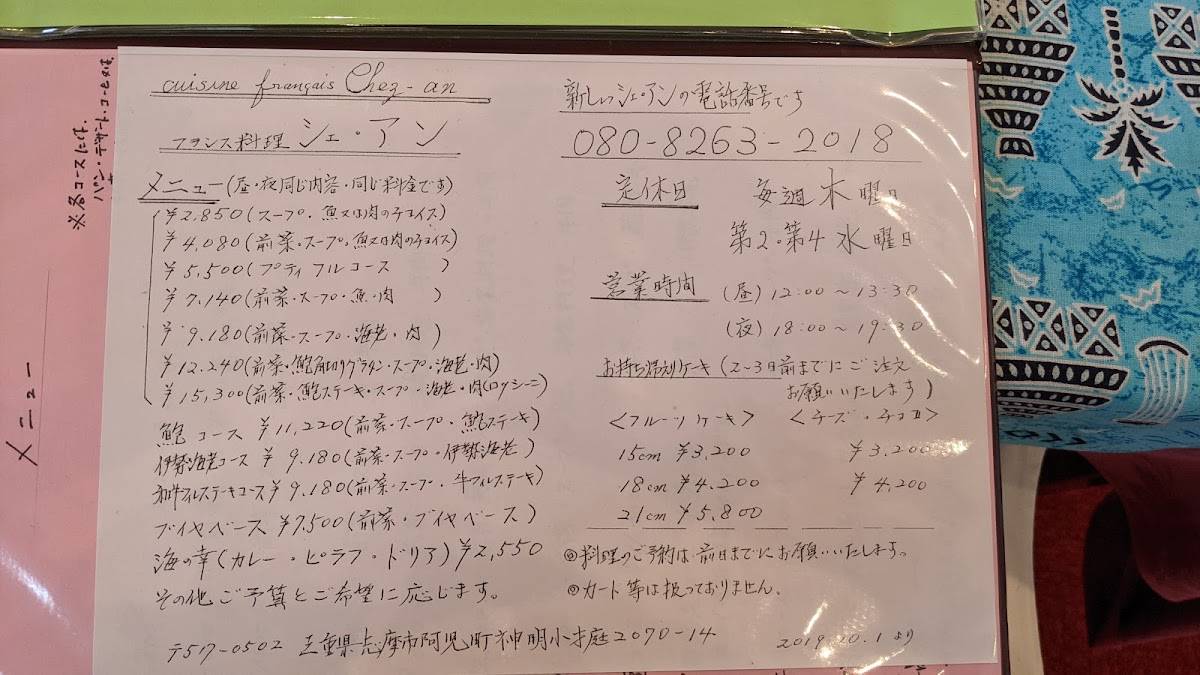 メニュー
※各コースに付、
パン・デザート・コーヒー又は、
cuisine français Chez-an
フランス料理 シェ・アン
メニュー(昼・夜同じ内容・同じ料金です)
¥2,850(スープ・魚又は肉のチョイス)
¥4,080(前菜・スープ・魚又は肉のチョイス)
¥5,500(プティフルコース )
¥7,140(前菜・スープ・魚・肉 )
¥9,180(前菜・スープ・海老・肉 )
¥12,240(前菜・鮑角切グラタン・スープ・海老・肉)
¥15,300(前菜・鮑ステーキ・スープ・海老・肉(ロッシーニ)
鮑コース ¥11,220(前菜・スープ・鮑ステーキ)
伊勢海老コース ¥9,180(前菜・スープ・伊勢海老)
和牛フィルステーキコース ¥9,180(前菜・スープ・牛フィルステーキ)
ブイヤベース ¥7,500(前菜・ブイヤベース)
海の幸(カレー・ピラフ・ドリア)¥2,550
その他ご予算とご希望に応じます。
新しいシェ・アンの電話番号です
080-8263-2018
定休日 毎週木曜日
第2・第4水曜日
営業時間 (昼)12:00~13:30
(夜)18:00~19:30
お持ち帰りケーキ(2~3日前までにご注文
お願いいたします)
<フルーツケーキ> <チーズ・チョコ>
15cm ¥3,200 ¥3,200
18cm ¥4,200 ¥4,200
21cm ¥5,800
◎料理のご予約は前日までにお願いいたします。
◎カード等は扱っておりません。
〒517-0502 三重県志摩市阿児町神明小才庭2070-14
2019.10.1より